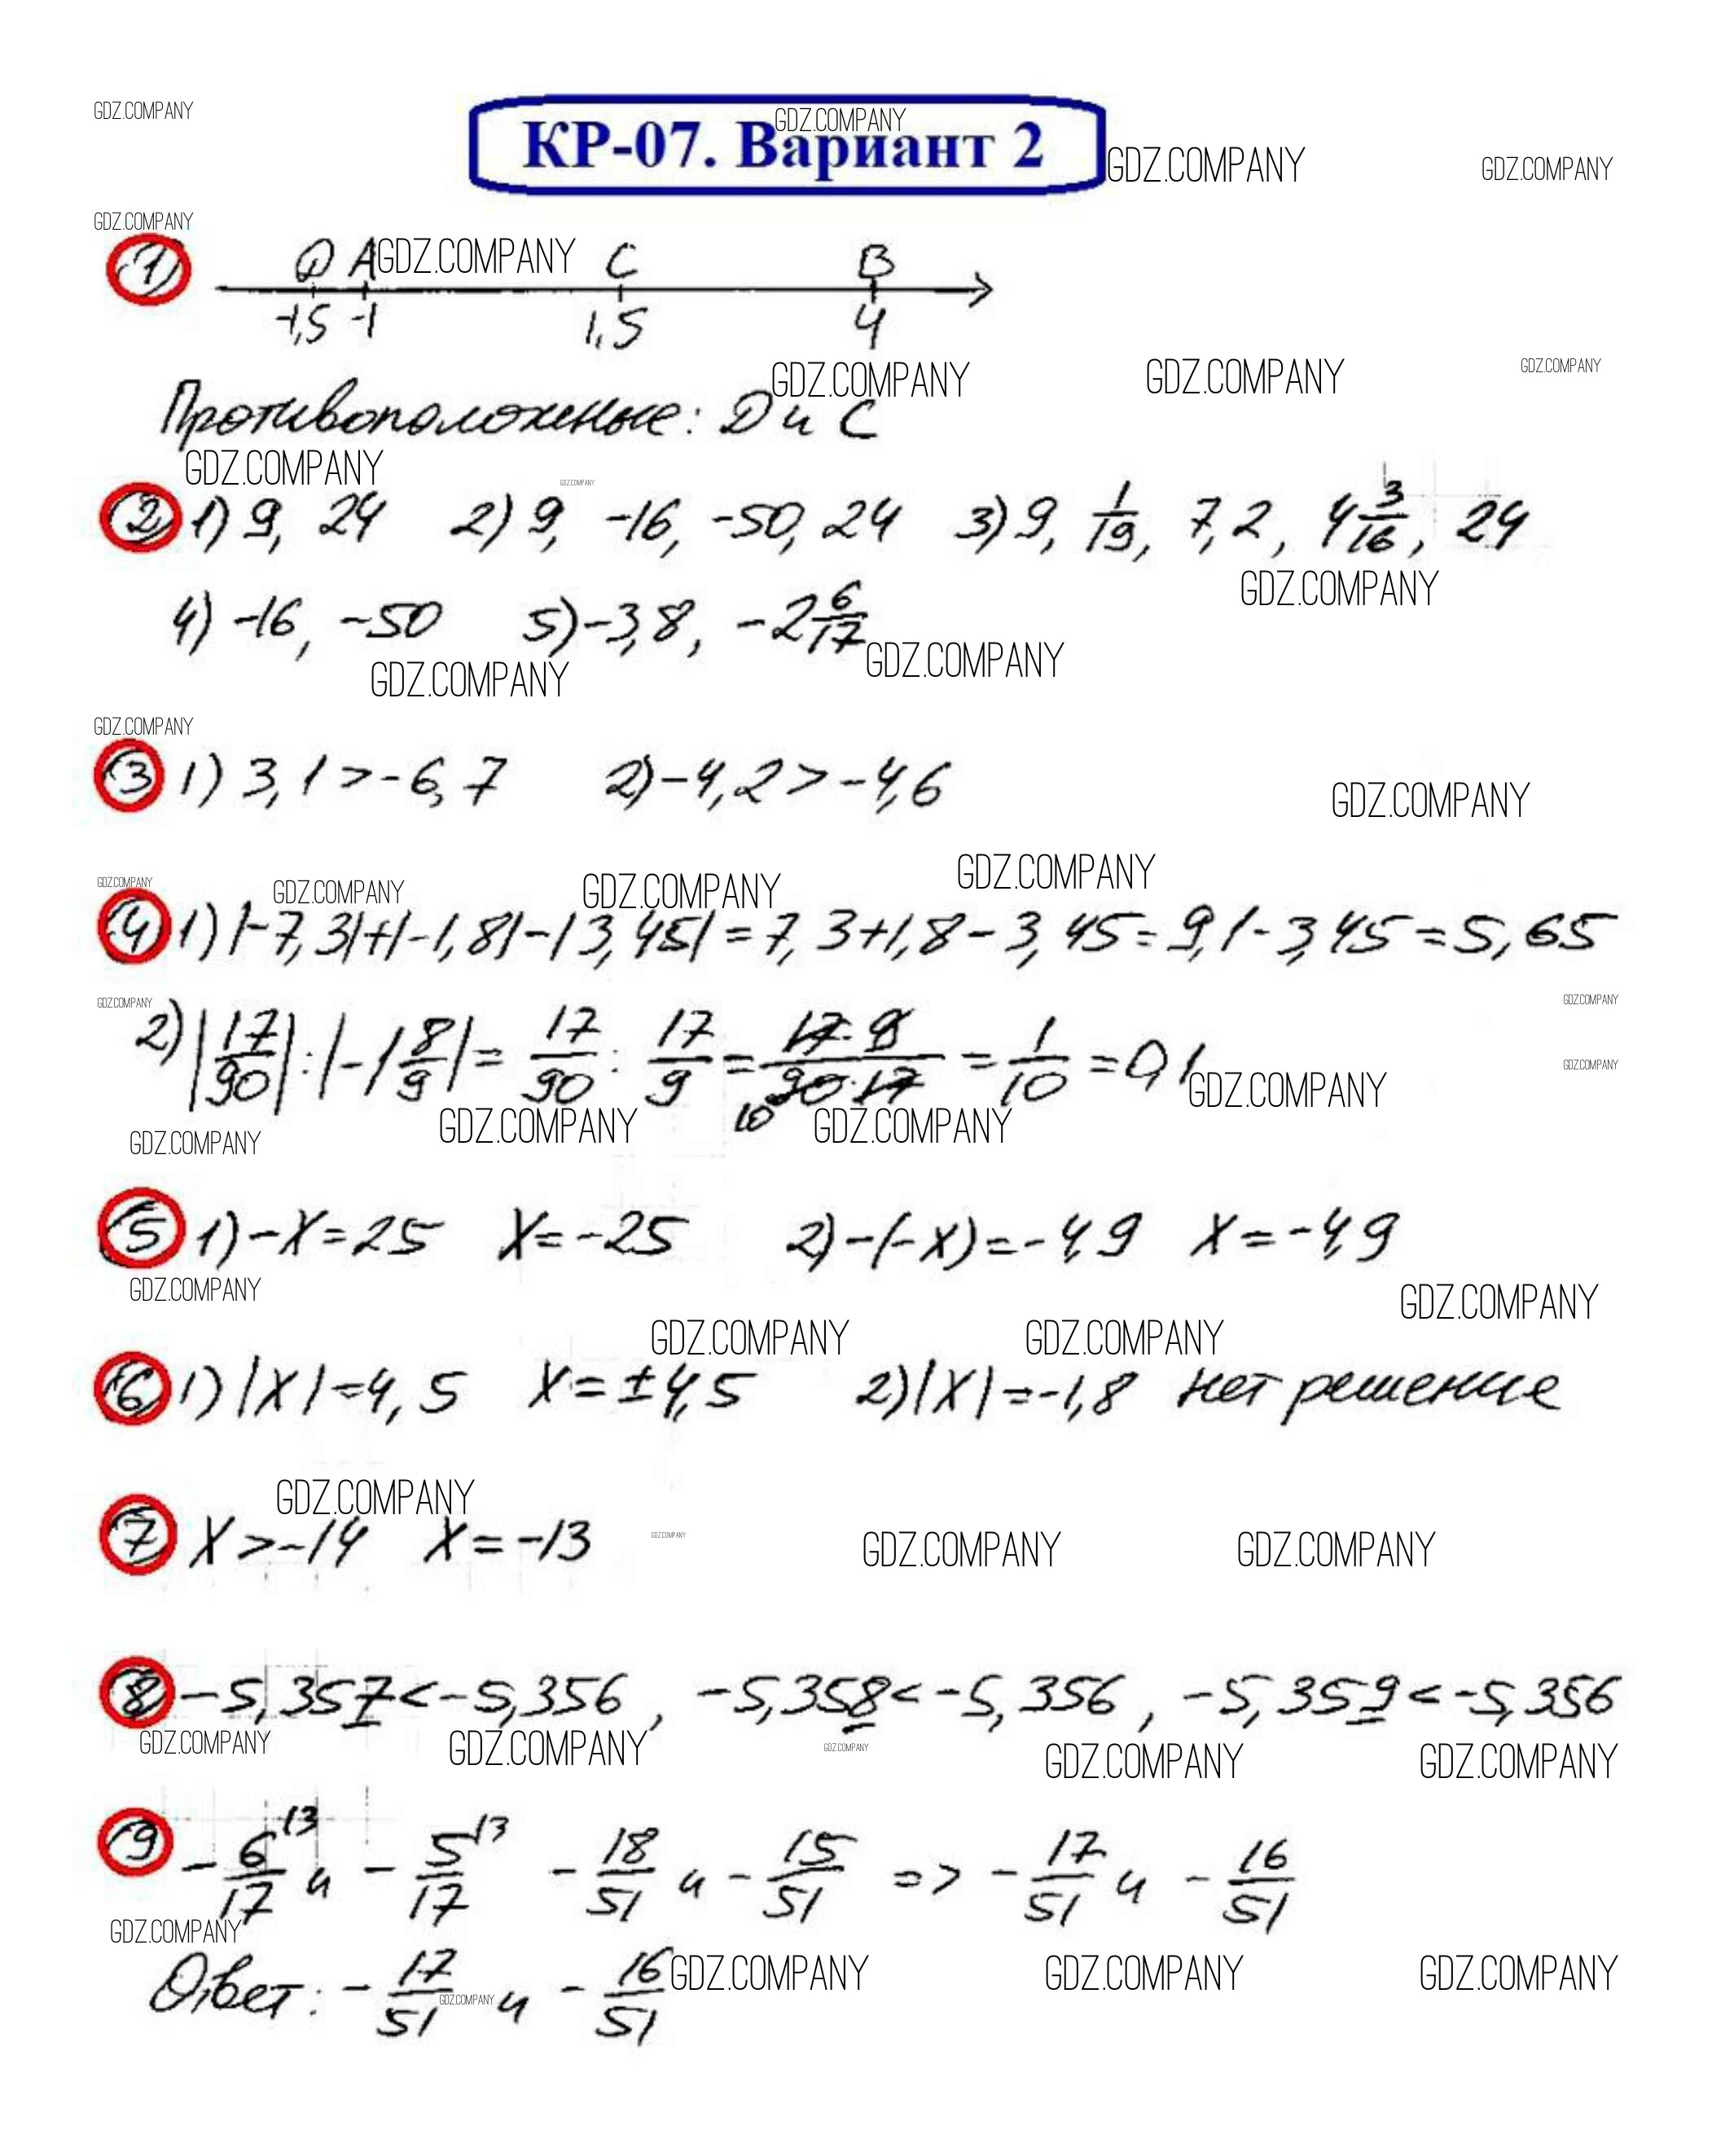 GDZ.COMPANY
GDZ.COMPANY
КР-07. Вариант 2
GDZ.COMPANY GDZ.COMPANY
GDZ.COMPANY
1 D A GDZ.COMPANY C B
-1,5 -1 1,5 4
GDZ.COMPANY GDZ.COMPANY GDZ.COMPANY
Противоположные: D и C
GDZ.COMPANY GDZ.COMPANY
2 1) 9, 24 2) 9, -16, -50, 24 3) 9, 1/19, 7,2, 4 3/16, 24
GDZ.COMPANY
4) -16, -50 5) -3,8, -2 6/17
GDZ.COMPANY GDZ.COMPANY
GDZ.COMPANY
3 1) 3,1 > -6,7 2) -4,2 > -4,6
GDZ.COMPANY
GDZ.COMPANY GDZ.COMPANY GDZ.COMPANY GDZ.COMPANY
4 1) |-7,3|+|-1,8|-|3,45| = 7,3+1,8-3,45 = 9,1-3,45 = 5,65
GDZ.COMPANY GDZ.COMPANY
2) |17/90| : |-1 8/9| = 17/90 : 17/9 = 17·9/90·17 = 1/10 = 0,1
10
GDZ.COMPANY GDZ.COMPANY
GDZ.COMPANY GDZ.COMPANY GDZ.COMPANY
5 1) -x = 25 x = -25 2) -(-x) = -4,9 x = -4,9
GDZ.COMPANY GDZ.COMPANY
GDZ.COMPANY GDZ.COMPANY
6 1) |x| = 4,5 x = ±4,5 2) |x| = -1,8 нет решение
GDZ.COMPANY
7 x > -14 x = -13
GDZ.COMPANY GDZ.COMPANY GDZ.COMPANY
8 -5,357 < -5,356, -5,358 < -5,356, -5,359 < -5,356
GDZ.COMPANY GDZ.COMPANY GDZ.COMPANY GDZ.COMPANY GDZ.COMPANY
9 -6/17 |3 и -5/17 |3 -18/51 и -15/51 => -17/51 и -16/51
GDZ.COMPANY
Ответ: -17/51 и -16/51
GDZ.COMPANY GDZ.COMPANY GDZ.COMPANY GDZ.COMPANY